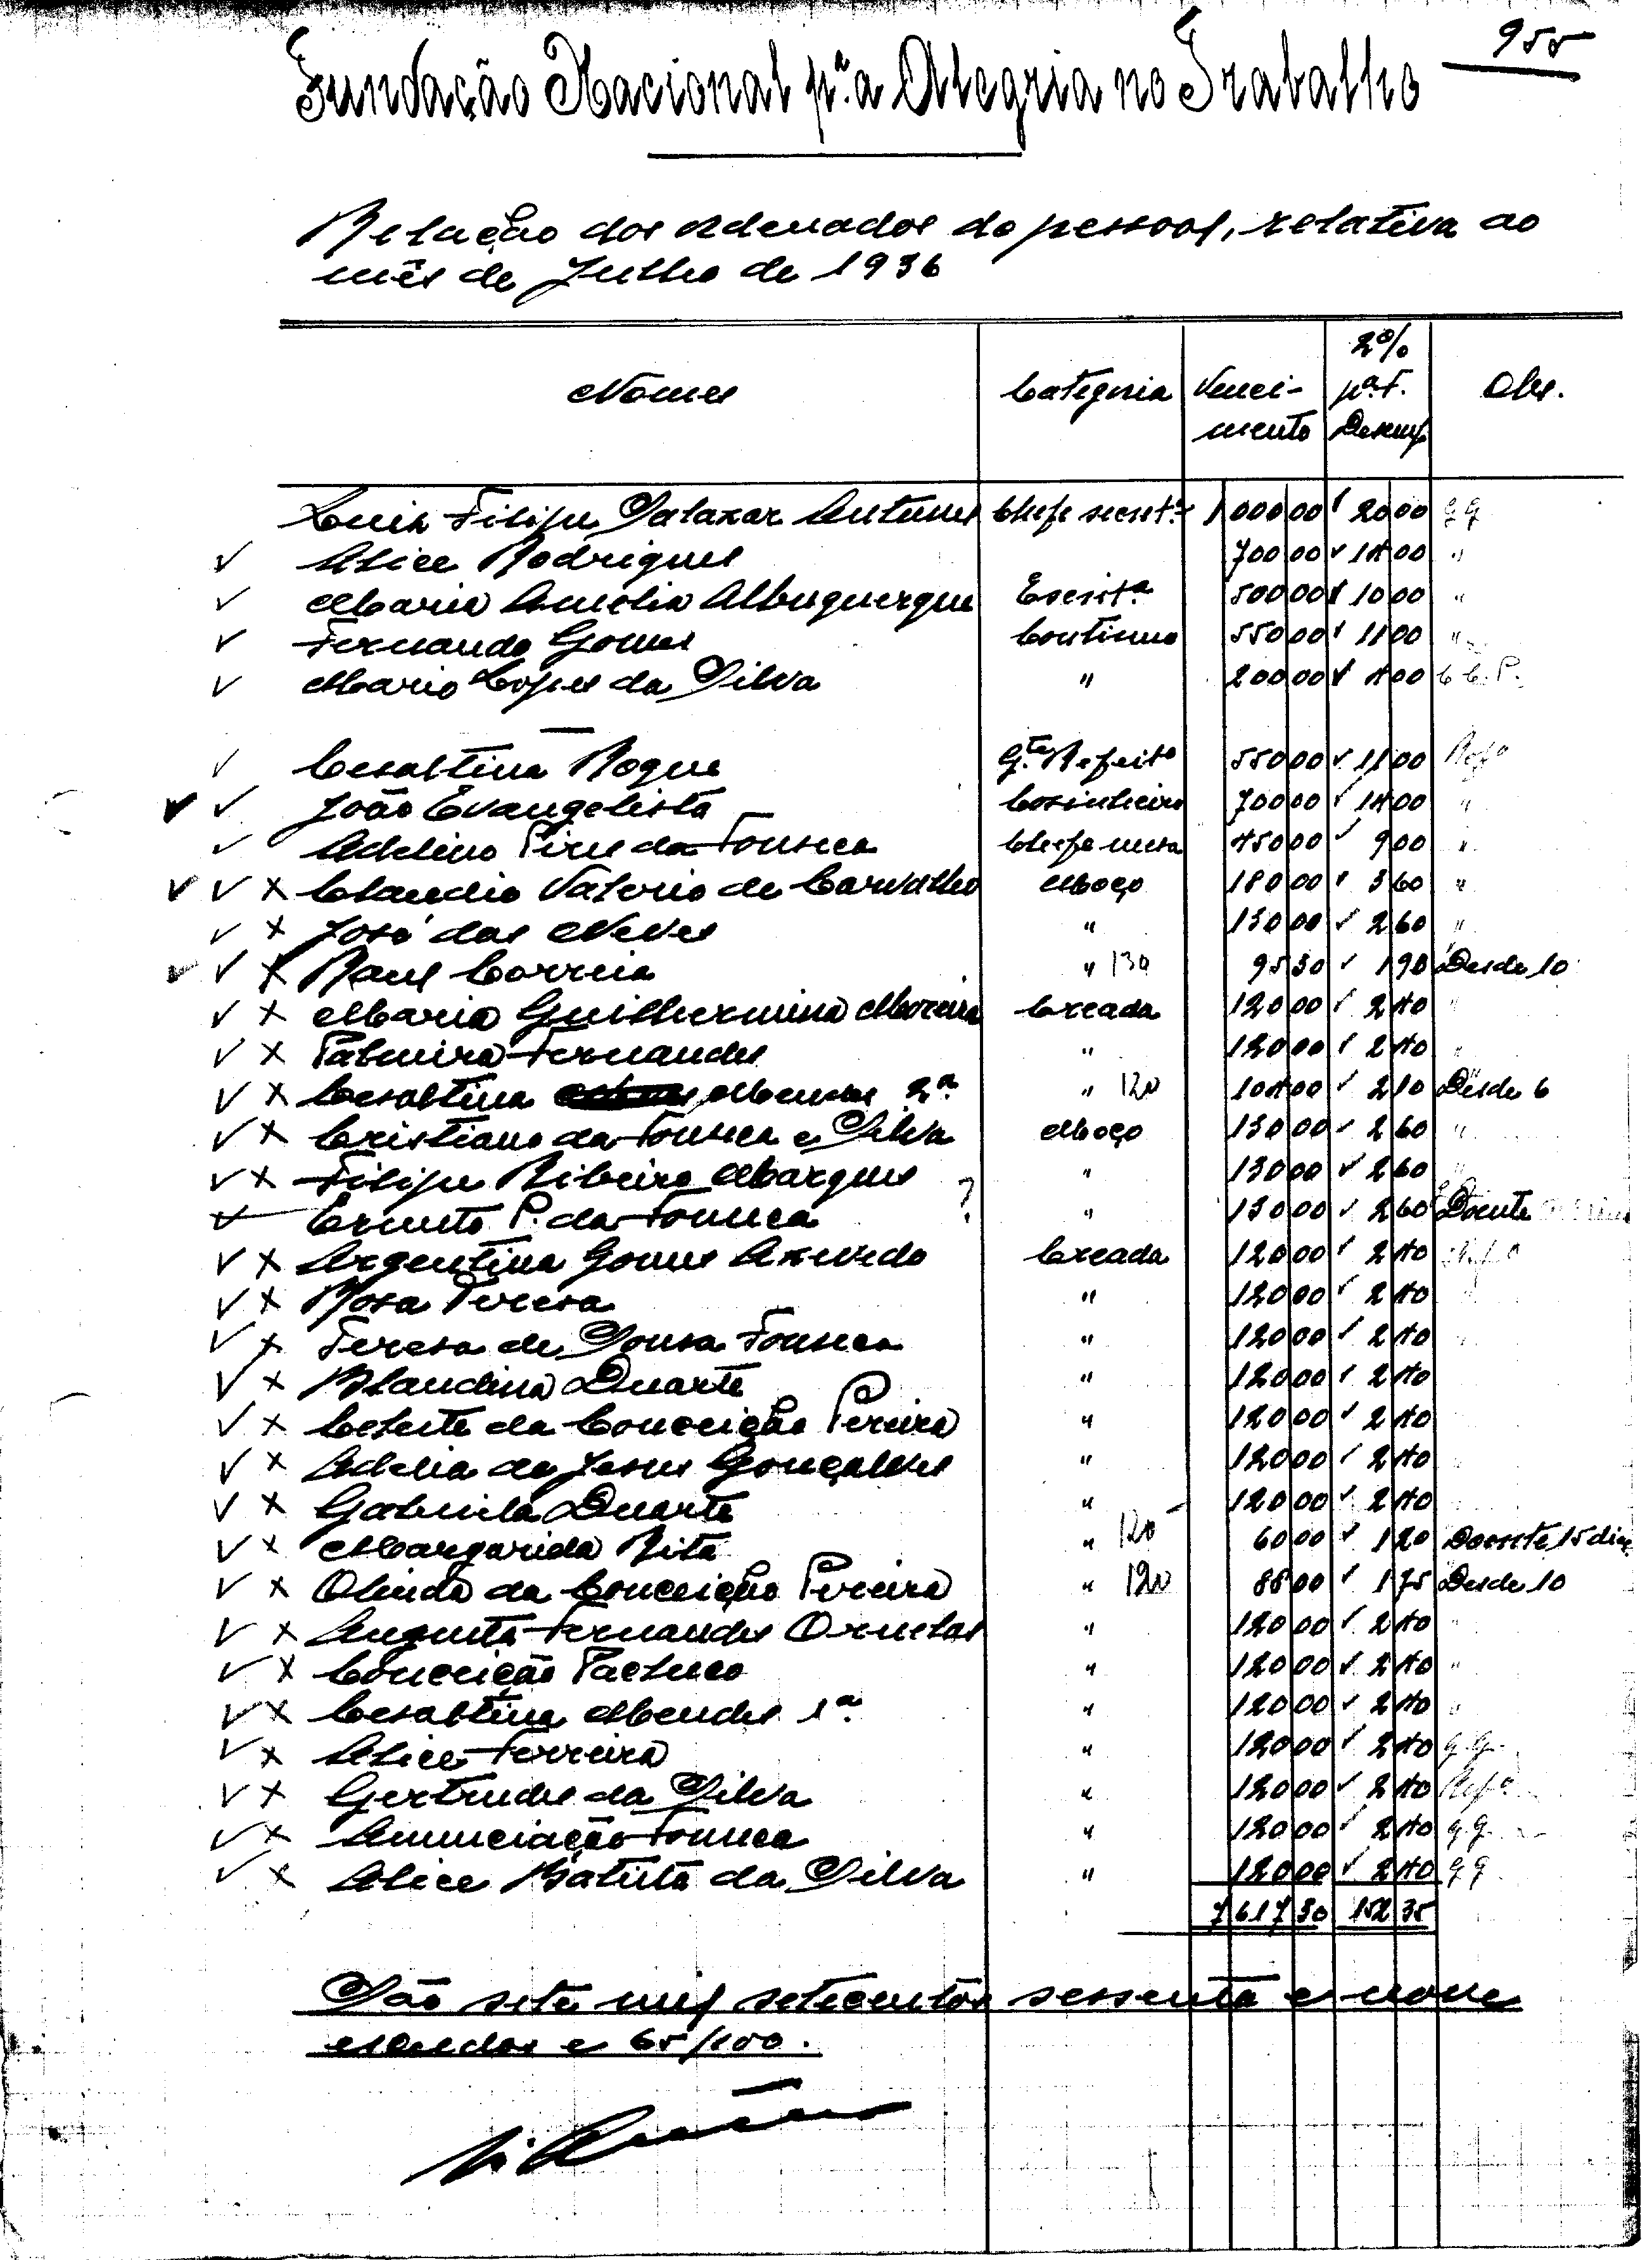 955
Fundação Nacional pª a Alegria no Trabalho
Relação dos ordenados do pessoal, relativa ao
mês de Julho de 1936
Nomes Categoria Venci-mento 2% pª F. Desemp Obs.
Luiz Filipe Salazar Antunes Chefe secretª 1 000 00 ✓ 20 00 G G
✓ Alice Rodrigues 700 00 ✓ 14 00 "
✓ Maria Amelia Albuquerque Escritª 500 00 ✓ 10 00 "
✓ Fernando Gomes Continuo 550 00 ✓ 11 00 "
✓ Mario Lopes da Silva " 200 00 ✓ 4 00 C. C. P.
✓ Cesaltina Roque Gte Refeitº 550 00 ✓ 11 00 Refº
✓ ✓ João Evangelista Cosinheiro 700 00 ✓ 14 00 "
✓ Adelino Pires da Fonseca Chefe mesa 450 00 ✓ 9 00 "
✓ ✓ x Claudio Valerio de Carvalho Moço 180 00 ✓ 3 60 "
✓ x José das Neves " 130 00 ✓ 2 60 "
✓ ✓ x Raul Correia " 130 95 30 ✓ 1 90 Desde 10
✓ x Maria Guilhermina Moreira Creada 120 00 ✓ 2 40 "
✓ x Palmira Fernandes " 120 00 ✓ 2 40 "
✓ x Cesaltina Mendes 2ª " 120 104 00 ✓ 2 10 Desde 6
✓ x Cristiano da Fonseca e Silva Moço 130 00 ✓ 2 60 "
✓ x Filipe Ribeiro Marques " 130 00 ✓ 2 60 "
✓ Ernesto P. da Fonseca ? " 130 00 ✓ 2 60 Doente
✓ x Argentina Gomes Azevedo Creada 120 00 ✓ 2 40 Refº
✓ x Rosa Teresa " 120 00 ✓ 2 40 "
✓ x Teresa de Sousa Fonseca " 120 00 ✓ 2 40
✓ x Blandina Duarte " 120 00 ✓ 2 40
✓ x Celeste da Conceição Pereira " 120 00 ✓ 2 40
✓ x Adelia de Jesus Gonçalves " 120 00 ✓ 2 40
✓ x Gabriela Duarte " 120 00 ✓ 2 40
✓ x Margarida Rita " 120 60 00 ✓ 1 20 Doente 15 dias
✓ x Olinda da Conceição Pereira " 120 88 00 ✓ 1 75 Desde 10
✓ x Augusta Fernandes Ornelas " 120 00 ✓ 2 40 "
✓ x Conceição Pacheco " 120 00 ✓ 2 40 "
✓ x Cesaltina Mendes 1ª " 120 00 ✓ 2 40 "
✓ x Alice Ferreira " 120 00 ✓ 2 40 G. G.
✓ x Gertrudes da Silva " 120 00 ✓ 2 40 Refº
✓ x Anunciação Fonseca " 120 00 ✓ 2 40 G G
✓ x Alice Batista da Silva " 120 00 ✓ 2 40 G G
7 617 30 152 35
São sete mil setecentos sessenta e nove
escudos e 65/100.